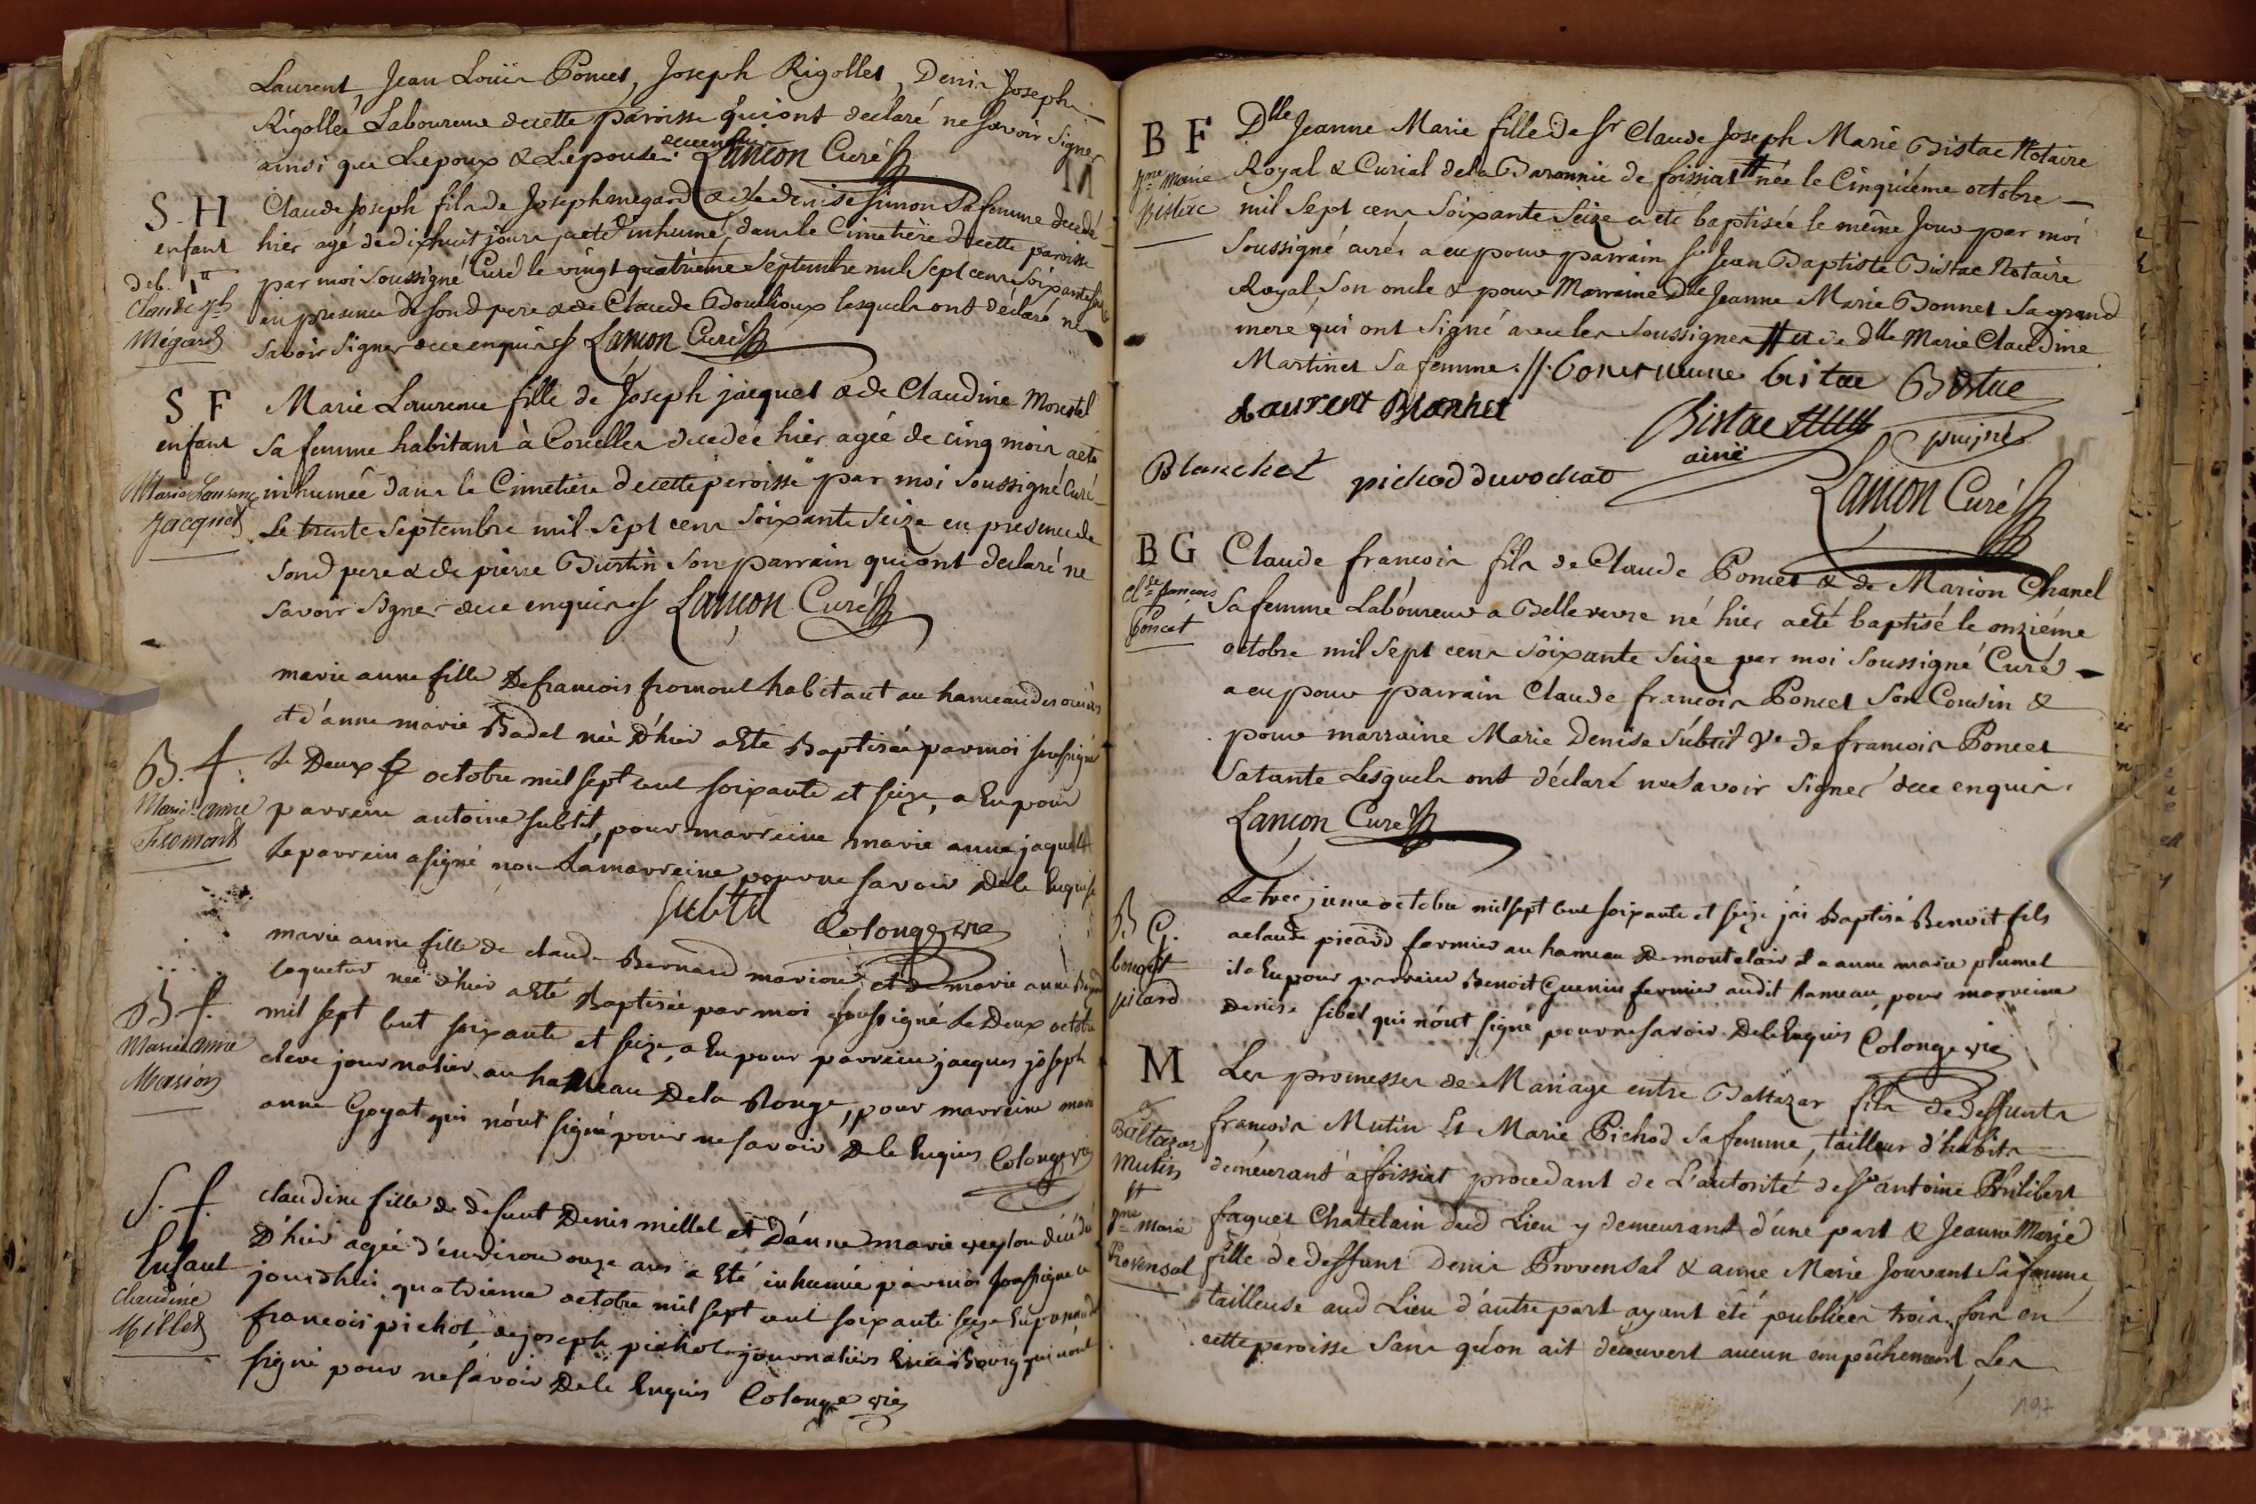 Laurent, Jean Louis Poncet, Joseph Rigollet, Denis Joseph
Rigollet Laboureurs decette paroisse qui ont declaré ne savoir signer
ainsi que Lepoux & Lepouse Lançon Curé
S. H
enfant
deb.
Claude Jph
Mégard
Claude Joseph fils de Joseph megard & de denise simon sa femme decedé
hier agé de dixhuit jours, aeté inhumé dans le Cimetière decette paroisse
par moi soussigné Curé le vingt quatrieme septembre mil sept cens soixante seize
en presence de sond pere & de Claude Bouilloux lesquels ont declaré ne
savoir signer dece enquis Lançon Curé
S F
enfant
Marie Laurence
Jacquet
Marie Laurence fille de Joseph jacquet & de Claudine Morestel
sa femme habitans à decedée hier agée de cinq mois aeté
inhumée dans le Cimetiere decette paroisse par moi soussigné Curé
Le trente septembre mil sept cens soixante seize en presence de
sond pere & de pierre Burtin son parrain qui ont declaré ne
savoir signer dece enquis Lançon Curé
B. f.
Marie anne
Fromont
marie anne fille De francois fromont habitant au hameau des
et d'anne marie Badel née D'hier a Eté Baptisée par moi soussigné
Le Deux octobre mil sept cent soixante et seize, a Eu pour
parrein antoine subtil, pour marreine marie anne jaquet
Le parrein a signé non La marreine pour ne savoir De le Enquise
subtil Colonge vic
B f.
Marie anne
Marion
marie anne fille de claude Bernard marion, et de marie anne
née d'hier a Eté Baptisée par moi soussigné Le Deux octobre
mil sept cent soixante et seize, a Eu pour parrein jacques joseph
cleve journalier au hameau De la Ronge, pour marreine marie
anne Goyat qui n'ont signé pour ne savoir De le Enquis Colonge vic
S. f.
Enfant
claudine
Millet
claudine fille de defunt Denis millet et D'anne marie veylon décédée
D'hier agée d'environ onze ans a Eté inhumée par moi soussigné ce
jourdhui quatrieme octobre mil sept cent soixante seize En presence de
francois pichot, de joseph pichot journaliers En ce Bourg qui n'ont
signé pour ne savoir De le Enquis Colonge vic
B F
Jne Marie
Bistac
Dlle Jeanne Marie fille de Sr Claude Joseph Marie Bistac Notaire
Royal & Curial dela Baronnie de foissiat # née le Cinquieme octobre
mil sept cens soixante seize a eté baptisée le même jour par moi
soussigné curé, a eu pour parrain Sr Jean Baptiste Bistac Notaire
Royal son oncle & pour Marraine Dlle Jeanne Marie Bonnet sa grand
mere qui ont signé avec les soussignés # et de dlle Marie Claudine
Martinet sa femme. // Bonet veuve bistac Bistac
Laurent Blanchet Bistac ainé puisné
Blanchet pichod duvochat Lançon Curé
B G
Cl.de françois
Poncet
Claude francois fils de Claude Poncet & de Marion Chanel
sa femme Laboureur a Bellevevre né hier aeté baptisé le onzième
octobre mil sept cens soixante seize par moi soussigné Curé
a eu pour parrain Claude francois Poncet son Cousin &
pour marraine Marie Denise Subtil Ve de francois Poncet
sa tante Lesquels ont declaré ne savoir signer dece enquis.
Lançon Curé
B G.
benoit
picard
Le treizieme octobre mil sept cent soixante et seize j'ai Baptisé Benoit fils
a claude picard fermier au hameau De montclair et a anne marie plumet
il a Eu pour parrein Benoit Guenin fermier audit hameau, pour marreine
Denise sibel qui n'ont signé pour ne savoir De le Enquis Colonge vic
M
Baltazar
Mutin
&
Jne Marie
Provensal
Les promesses de Mariage entre Baltazar fils de deffunts
francois Mutin Et Marie Pichod sa femme, tailleur d'habits
demeurant à foissiat procedant de L'autorité de Sr antoine Philibert
faguet Chatelain dud Lieu y demeurant d'une part & Jeanne Marie
fille de deffunt Denis Provensal & anne Marie Jouvant sa femme,
tailleuse aud Lieu d'autre part ayant été publiées trois fois en
cette paroisse sans qu'on ait decouvert aucun empêchement, Les
197